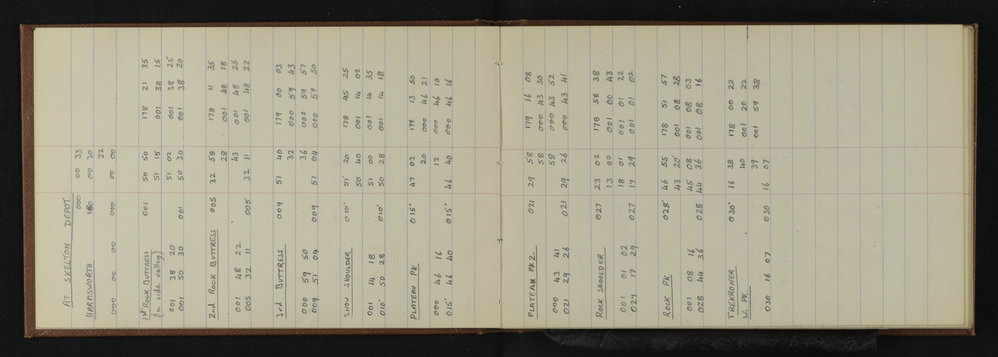 AT SKELTON DEPOT.
000 00 33
HARMSWORTH 180 00 30
32
000 00 00 000 00 00
1st ROCK BUTTRESS 001 50 50 178 21 35
(in side valley) 51 15 001 38 15
001 38 20 51 02 001 38 25
001 50 30 001 50 30 001 38 20
2nd ROCK BUTTRESS 005 32 58 178 11 35
28 001 48 18
001 48 22 43 001 48 25
005 32 11 005 32 11 001 48 22
3rd BUTTRESS 009 51 40 179 00 03
32 000 59 43
000 59 50 36 000 59 57
009 51 04 009 51 04 000 59 50
SNOW SHOULDER 010' 51' 20 178 45 25
50 40 001 14 02
001 14 18 51 00 001 14 35
010' 50 28 010' 50 28 001 14 18
PLATEAU PK 015° 47 03 179 13 50
20 000 46 21
000 46 16 12 000 46 10
015' 46 40 015' 46 40 000 46 16
PLATEAU PK 2. 021 29 58 179 16 08
58 000 43 30
000 43 41 58 000 43 52
021 29 26 021 29 26 000 43 41
ROCK SHOULDER 027 23 02 178 58 38
13 00 001 00 43
001 01 02 18 01 001 01 22
027 17 29 027 17 29 001 01 02
ROCK PK 028' 46 55 178 51 57
43 20' 001 08 28
001 08 16 45 08 001 08 03
028 44 36 028 44 36 001 08 16
TREKRONER 030' 16 38 178 00 22
W. PK. 40 001 20 22
39 001 59 38
030 16 07 030 16 07